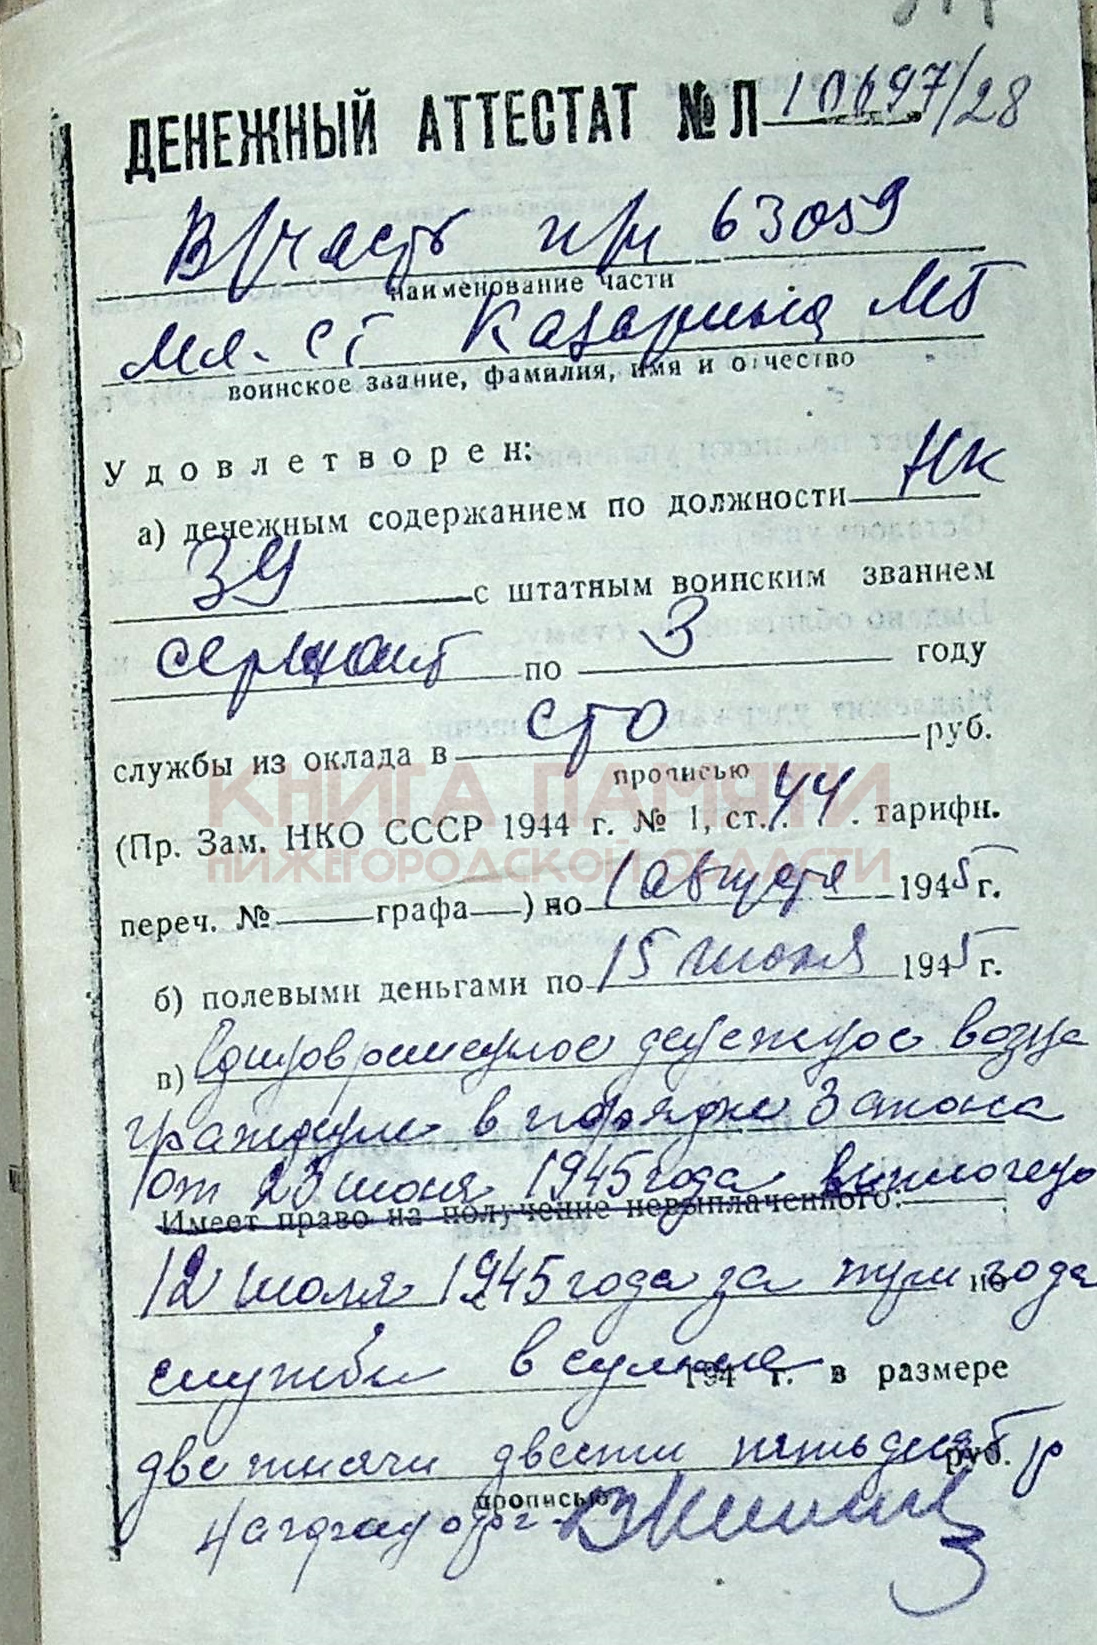 ДЕНЕЖНЫЙ АТТЕСТАТ № Л 10697/28
В/часть п/п 63059
наименование части
Мл. ст Казарина МГ
воинское звание, фамилия, имя и отчество
Удовлетворен:
а) денежным содержанием по должности НК
ЗУ с штатным воинским званием
сержант по 3 году
службы из оклада в сто руб.
прописью
КНИГА ПАМЯТИ
(Пр. Зам. НКО СССР 1944 г. № 1, ст. 44. тарифн.
НИЖЕГОРОДСКОЙ ОБЛАСТИ
переч. № графа ) но 1 августа 1945 г.
б) полевыми деньгами по 15 июля 1945 г.
в) Единовременное денежное возна
граждение в порядке Закона
от 23 июня 1945 года включено
Имеет право на получение невыплаченного:
12 июля 1945 года за три года по
службы в сумме 194 г. в размере
две тысячи двести пятьдесят р руб.
прописью
Начфинчасти